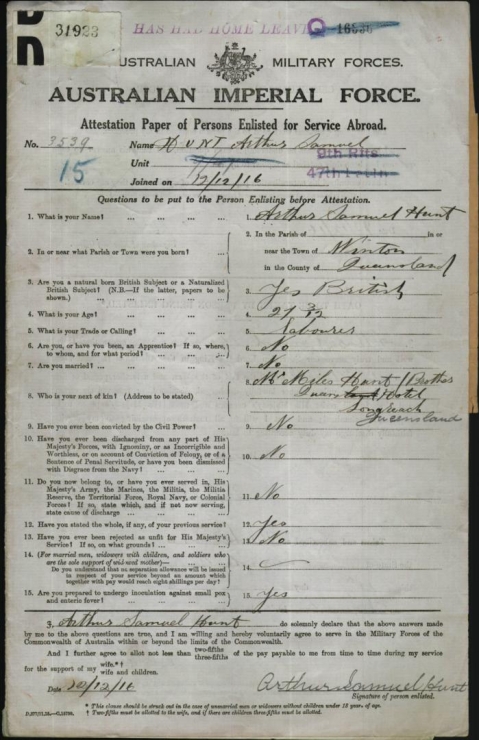 31923
HAS HAD HOME LEAVE
AUSTRALIAN MILITARY FORCES.
AUSTRALIAN IMPERIAL FORCE.
Attestation Paper of Persons Enlisted for Service Abroad.
No. 3539 Name HUNT Arthur Samuel
15 Unit 9th Rfts
47th
Joined on 12/12/16
Questions to be put to the Person Enlisting before Attestation.
1. What is your Name? ... ... ... 1. Arthur Samuel Hunt
2. In or near what Parish or Town were you born? ... 2. In the Parish of in or
near the Town of Winton
in the County of Queensland
3. Are you a natural born British Subject or a Naturalized
British Subject? (N.B.—If the latter, papers to be
shown.) ... ... 3. Yes British
4. What is your Age? ... ... ... 4. 21 3/12
5. What is your Trade or Calling? ... ... 5. Labourer
6. Are you, or have you been, an Apprentice? If so, where,
to whom, and for what period? ... ... 6. No
7. Are you married? ... ... ... 7. No
8. Who is your next of kin? (Address to be stated) ... 8. Mr Miles Hunt / Brother
Hotel
Longreach
Queensland
9. Have you ever been convicted by the Civil Power? ... 9. No
10. Have you ever been discharged from any part of His
Majesty's Forces, with Ignominy, or as Incorrigible and
Worthless, or on account of Conviction of Felony, or of a
Sentence of Penal Servitude, or have you been dismissed
with Disgrace from the Navy? ... 10. No
11. Do you now belong to, or have you ever served in, His
Majesty's Army, the Marines, the Militia, the Militia
Reserve, the Territorial Force, Royal Navy, or Colonial
Forces? If so, state which, and if not now serving,
state cause of discharge ... 11. No
12. Have you stated the whole, if any, of your previous service? 12. Yes
13. Have you ever been rejected as unfit for His Majesty's
Service? If so, on what grounds? ... 13. No
14. (For married men, widowers with children, and soldiers who
are the sole support of widowed mother)—
Do you understand that no separation allowance will be issued
in respect of your service beyond an amount which
together with pay would reach eight shillings per day? 14.
15. Are you prepared to undergo inoculation against small pox
and enteric fever? ... ... 15. Yes
I, Arthur Samuel Hunt do solemnly declare that the above answers made
by me to the above questions are true, and I am willing and hereby voluntarily agree to serve in the Military Forces of the
Commonwealth of Australia within or beyond the limits of the Commonwealth.
And I further agree to allot not less than two-fifths
three-fifths of the pay payable to me from time to time during my service
for the support of my wife.*†
wife and children.
Date 12/12/16 Arthur Samuel Hunt
Signature of person enlisted.
* This clause should be struck out in the case of unmarried men or widowers without children under 18 years of age.
† Two-fifths must be allotted to the wife, and if there are children three-fifths must be allotted.